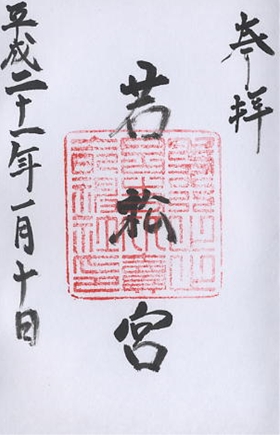 奉拝
若松宮
平成二十一年一月十日